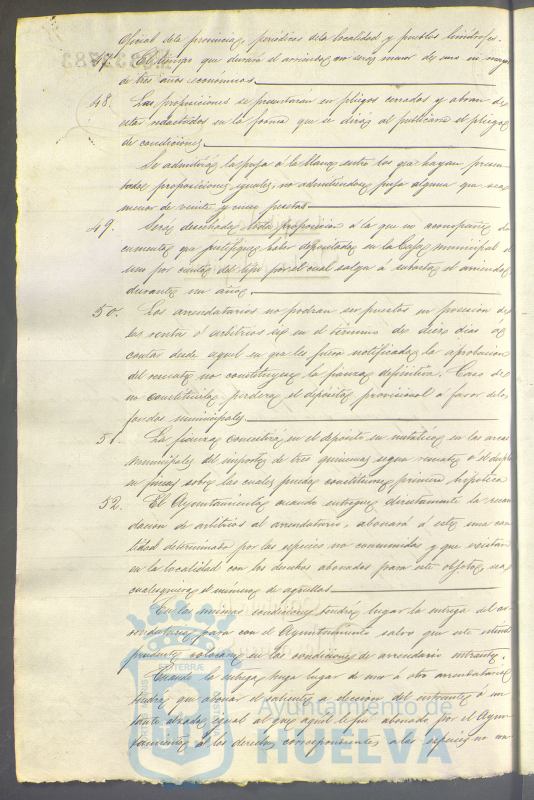 Oficial de la provincia, periódicos de la localidad y pueblos limítrofes.
47. El tiempo que durará el arriendo no será menor de uno ni mayor
de tres años económicos.
48. Las proposiciones se presentarán en pliegos cerrados y abran de
estar redactadas en la forma que se dirá al publicarse el pliego
de condiciones.
Se admitirá la puja á la llana entre los que hayan presen-
tado proposiciones iguales, no admitiéndose puja alguna que sea
menor de veinte y cinco pesetas.
49. Será desechada toda proposición á la que no acompañe do-
cumento que justifique haber depositado en la Caja municipal el
uno por ciento del tipo por el cual salga á subasta el arriendo
durante un año.
50. Los arrendatarios no podrán ser puestos en posesión de
las rentas ó arbitrios si en el término de diez días á
contar desde aquel en que les fuera notificada la aprobación
del remate no constituyese la fianza definitiva. Caso de
no constituirla perderá el depósito provisional á favor de los
fondos municipales.
5 La fianza consistirá en el depósito en metálico en las arcas
municipales del importe de tres quincenas segun remate ó el duplo
en fincas sobre las cuales pueda constituirse primera hipoteca
52. El Ayuntamiento cuando entregue directamente la recau-
dación de arbitrios al arrendatario, abonará á este una can-
tidad determinada por las especies no consumidas y que existan
en la localidad con los derechos abonados para este objeto sea
cualesquiera el número de aquellas.
En las mismas condiciones tendrá lugar la entrega del ar-
rendatario para con el Ayuntamiento salvo que este estime
prudente colocarse en las condiciones de arrendatario entrante.
Cuando la entrega haga lugar de uno á otro arrendatario
tendrá que abonar el saliente á elección del entrante ó un
tanto alzado igual al que aquel le fué abonado por el Ayun-
tamiento ó los derechos correspondientes á las especies no con-
Ayuntamiento de
HUELVA